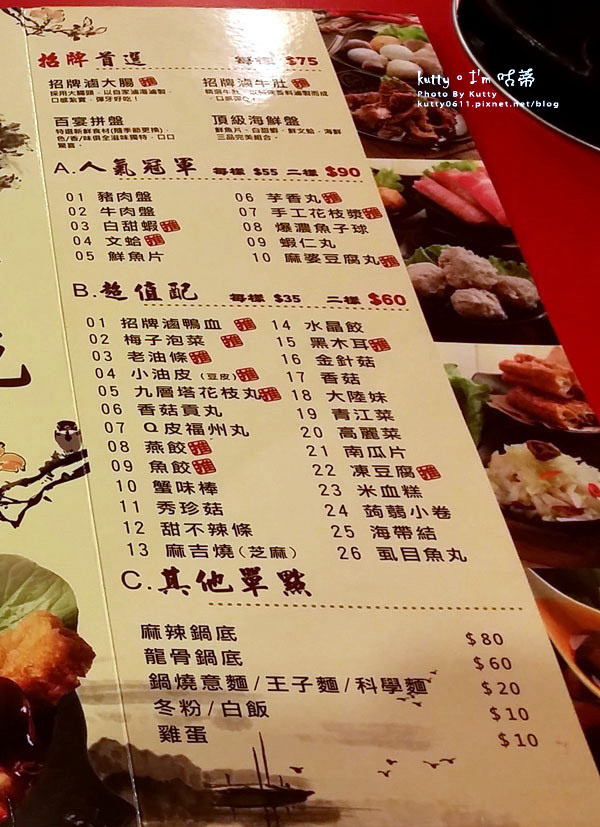 kutty。I'm 咕蒂
Photo By Kutty
kutty0611.pixnet.net/blog
招牌首選 每樣 $75
招牌滷大腸 推 招牌滷牛肚 推
採用大腸頭，以自家滷湯滷製，
口感紮實，彈牙好吃！
百宴拼盤 頂級海鮮盤
特選新鮮食材(隨季節更換)，
色/香/味俱全滋味獨特，口口
驚喜。
鮮魚片、白甜蝦、鮮文蛤、海鮮
三品完美組合。
A.人氣冠軍 每樣 $55 二樣 $90
01 豬肉盤
02 牛肉盤
03 白甜蝦 推
04 文蛤 推
05 鮮魚片
06 芋香丸 推
07 手工花枝漿 推
08 爆濃魚子球
09 蝦仁丸
10 麻婆豆腐丸 推
B.超值配 每樣 $35 二樣 $60
01 招牌滷鴨血 推
02 梅子泡菜 推
03 老油條 推
04 小油皮(豆皮) 推
05 九層塔花枝丸 推
06 香菇貢丸
07 Q皮福州丸
08 燕餃 推
09 魚餃 推
10 蟹味棒
11 秀珍菇
12 甜不辣條
13 麻吉燒(芝麻)
14 水晶餃
15 黑木耳 推
16 金針菇
17 香菇
18 大陸妹
19 青江菜
20 高麗菜
21 南瓜片
22 凍豆腐 推
23 米血糕
24 蒟蒻小卷
25 海帶結
26 虱目魚丸
C.其他單點
麻辣鍋底 $80
龍骨鍋底 $60
鍋燒意麵/王子麵/科學麵 $20
冬粉/白飯 $10
雞蛋 $10